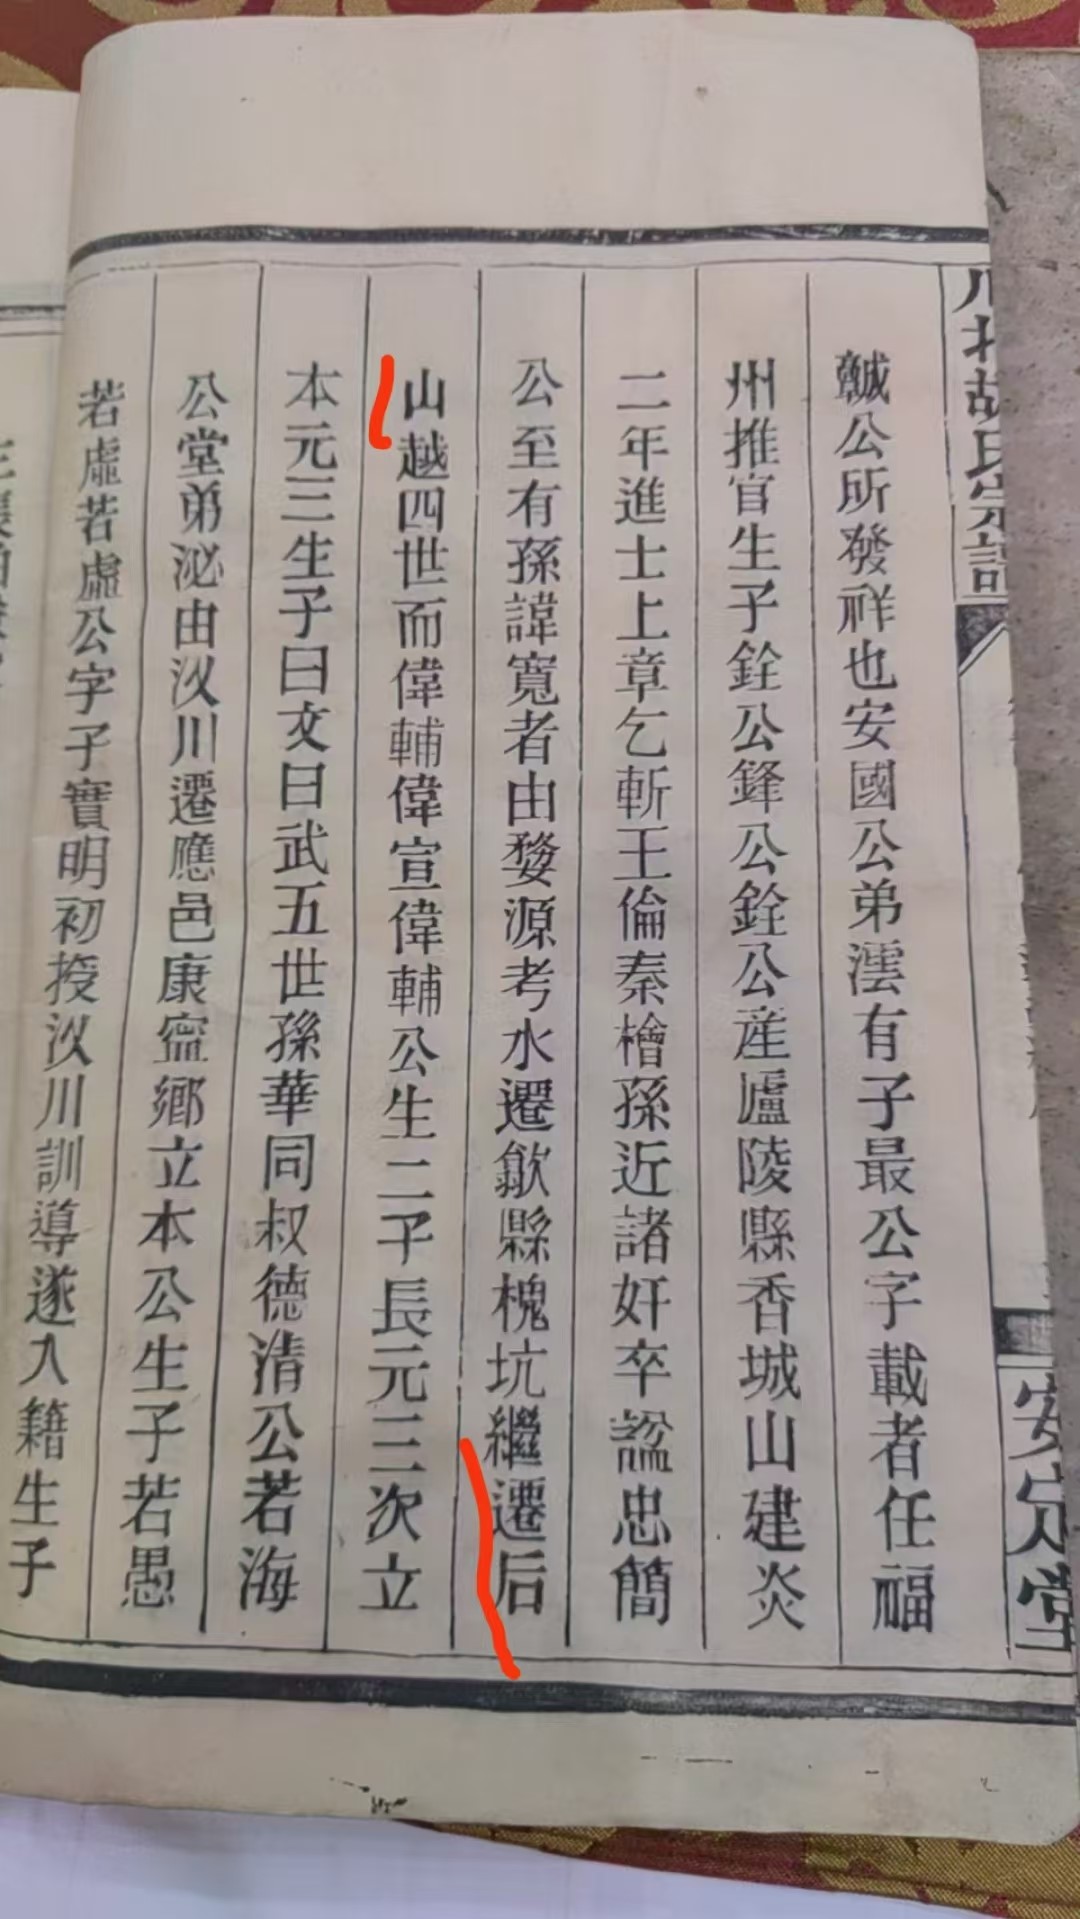 川北胡氏宗譜
安定堂
公所發祥也安國公弟澐有子最公字載者任福
州推官生子銓公鋒公銓公産廬陵縣香城山建炎
二年進士上章乞斬王倫秦檜孫近諸奸卒謚忠簡
公至有孫諱寬者由婺源考水遷歙縣槐坑繼遷后
山越四世而偉輔偉宣偉輔公生二子長元三次立
本元三生子曰文曰武五世孫華同叔德清公若海
公堂弟泌由汊川遷應邑康寍鄉立本公生子若愚
若虛若虛公字子實明初授汊川訓導遂入籍生子